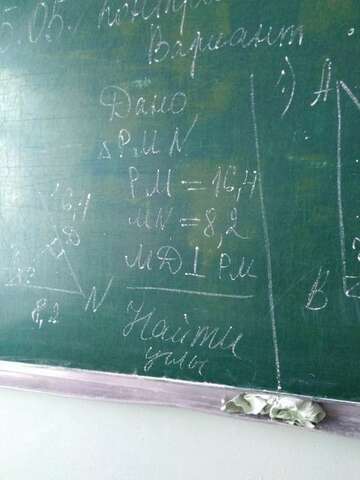 5.05.
Вариант
Дано
△PMN
PM = 16,4
MN = 8,2
MD ⊥ PM
Найти
углы
N
8,2
A
B